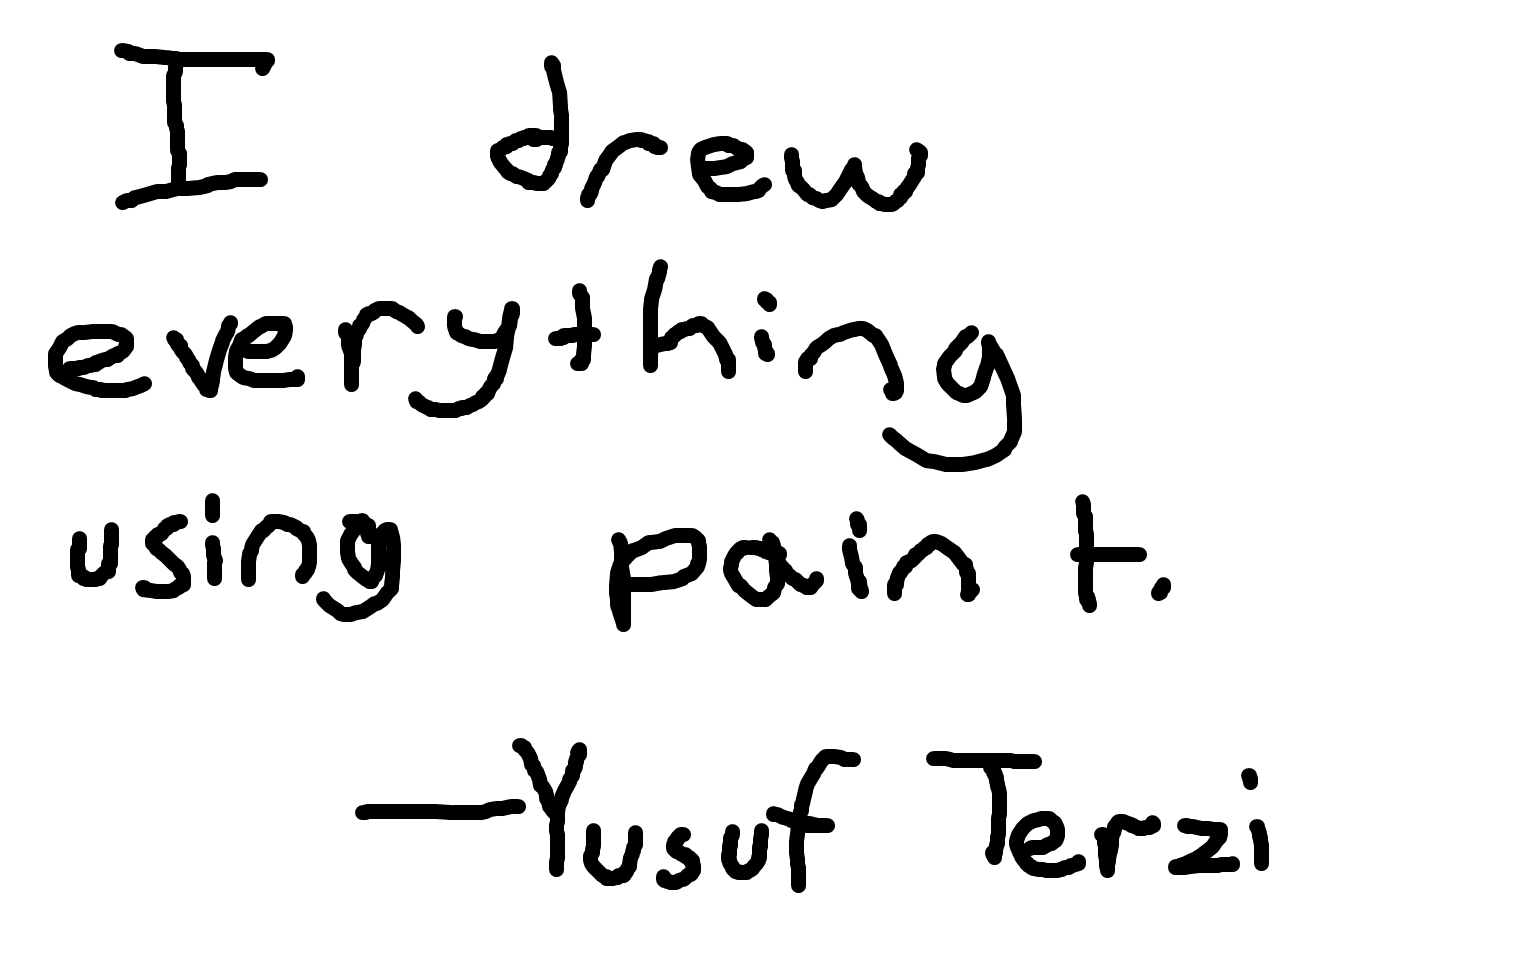 I drew
everything
using paint.
—Yusuf Terzi